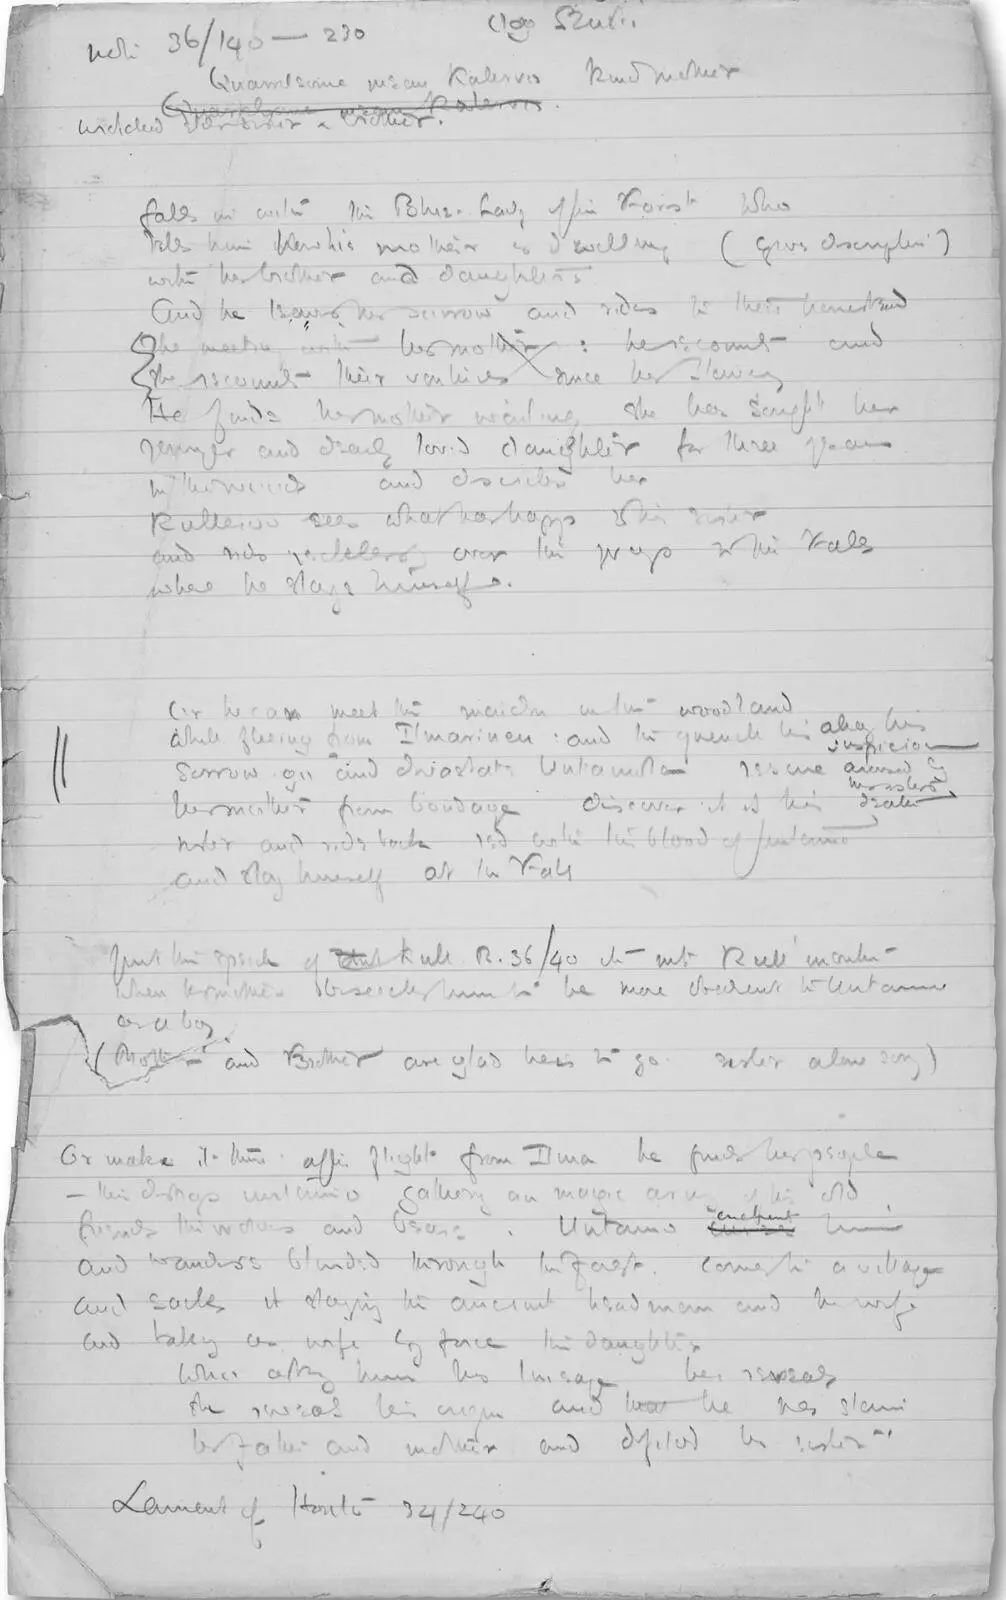 36/140 — 230
Quarrelsome mean Kalervo Kind mother
Quarrelsome mean Kalervo.
wicked sister & brother.
falls in with the Blue-Lady of the Forest who
tells him where his mother is dwelling (give description)
with her brother and daughters
And he leaves her sorrow and rides to their homestead
the meeting with her mother: he recounts and
she recounts their ventures since her slaving
He finds her mother wailing she has sought her
younger and dearly loved daughter for three years
in the woods and describes her
Kullervo sees what has happed to his sister
and rides recklessly over the to the Falls
where he slays himself.
Or he can meet the maiden in the woodland
while fleeing from Ilmarinen: and to quench his
sorrow go and devastate Untamola rescue
his mother from bondage discover it is his
sister and ride back red with the blood of Untamo
and slay himself at the Falls
suspicion
aroused by
master's
death
put the speech of Kull R. 36/40 into Kull' mouth
when his mother beseeches him to be more obedient to Untamo
as a boy.
(Mother and Brother are glad he is to go. sister alone sorry)
Or make it thus: after flight from Ilma he finds his people
— then destroys Untamo gathering an magic army of his old
friends the wolves and bears. Untamo curses him
and wanders blinded through the forest. Comes to a village
and sacks it slaying the ancient headman and his wife
and taking as wife by force the daughter
Who asking him his lineage he reveals
she reveals her origin and how he has slain
his father and mother and defiled his sister
Lament of 34/240